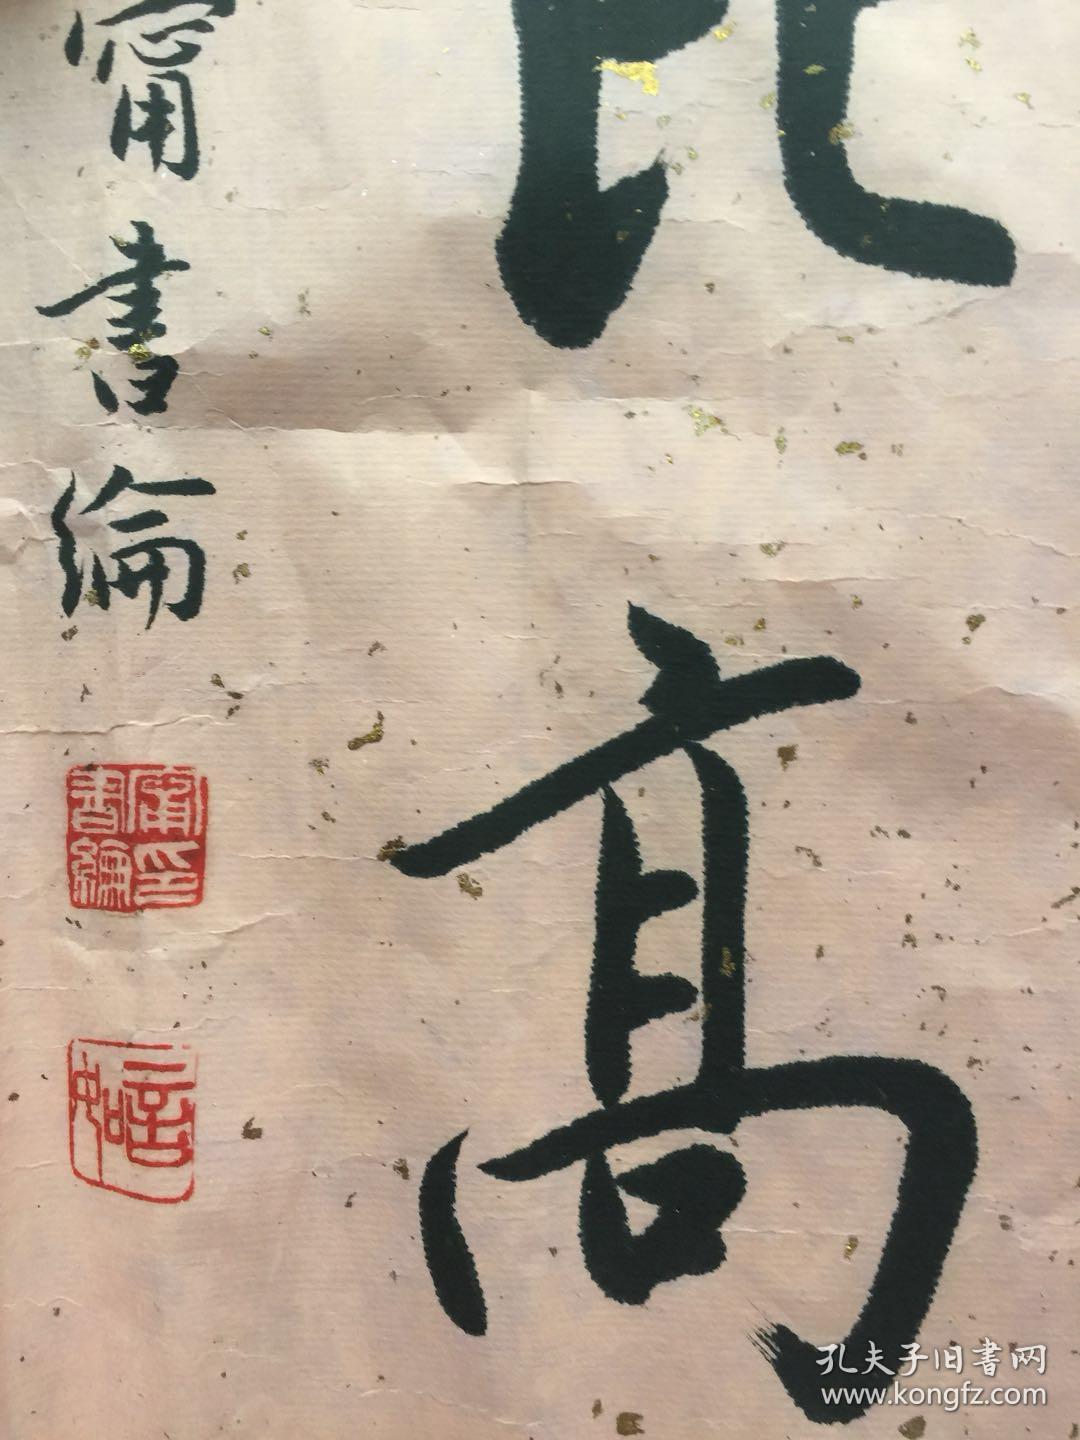 比高
甯書綸
甯印書綸
孔夫子旧書网
www.kongfz.com